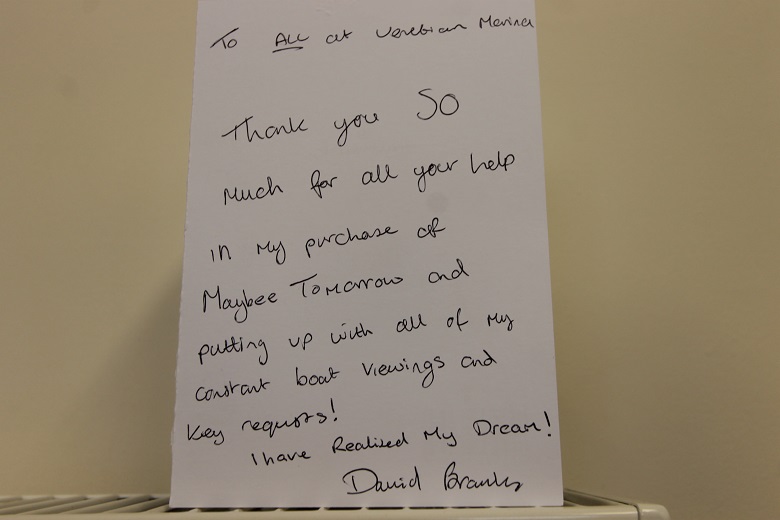 To ALL at Venetian Marina
Thank you SO
Much for all your help
in my purchase of
Maybee Tomorrow and
putting up with all of my
constant boat viewings and
key requests!
I have Realised My Dream!
David